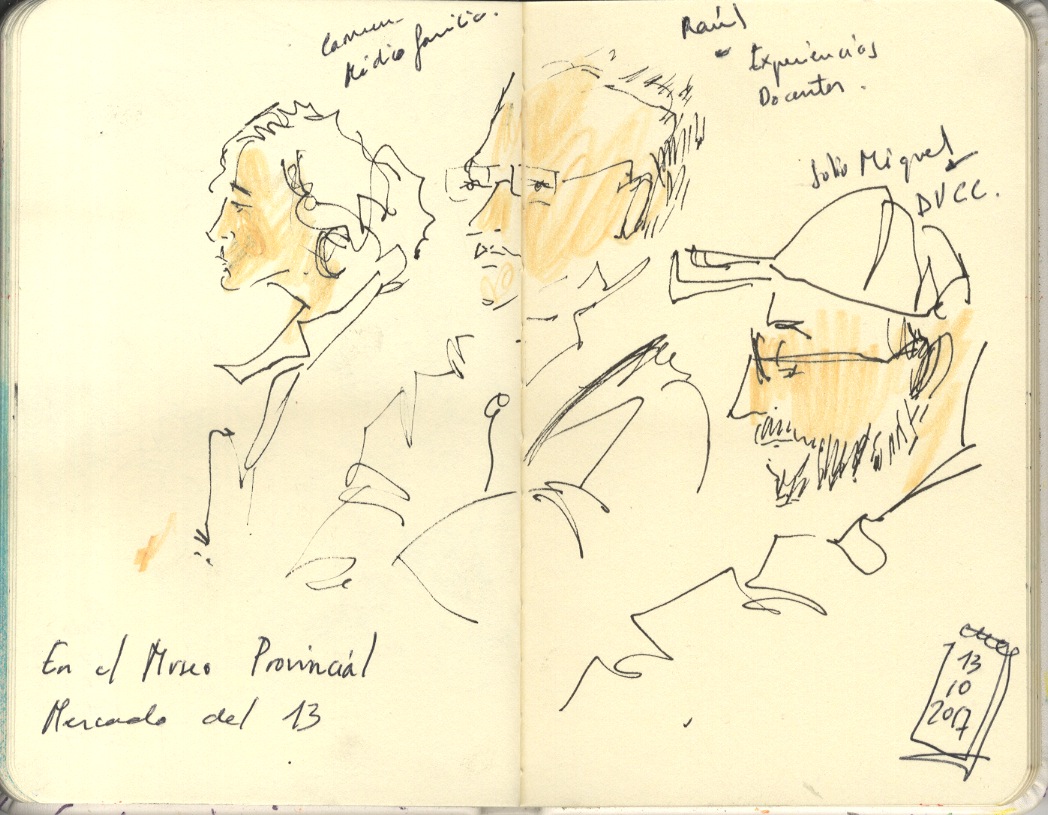 Carmen
Médico familia.
Raúl
Experiencias
Docentes.
Julio Miguel
DVCC.
En el Museo Provincial
Mercado del 13
13
10
2017